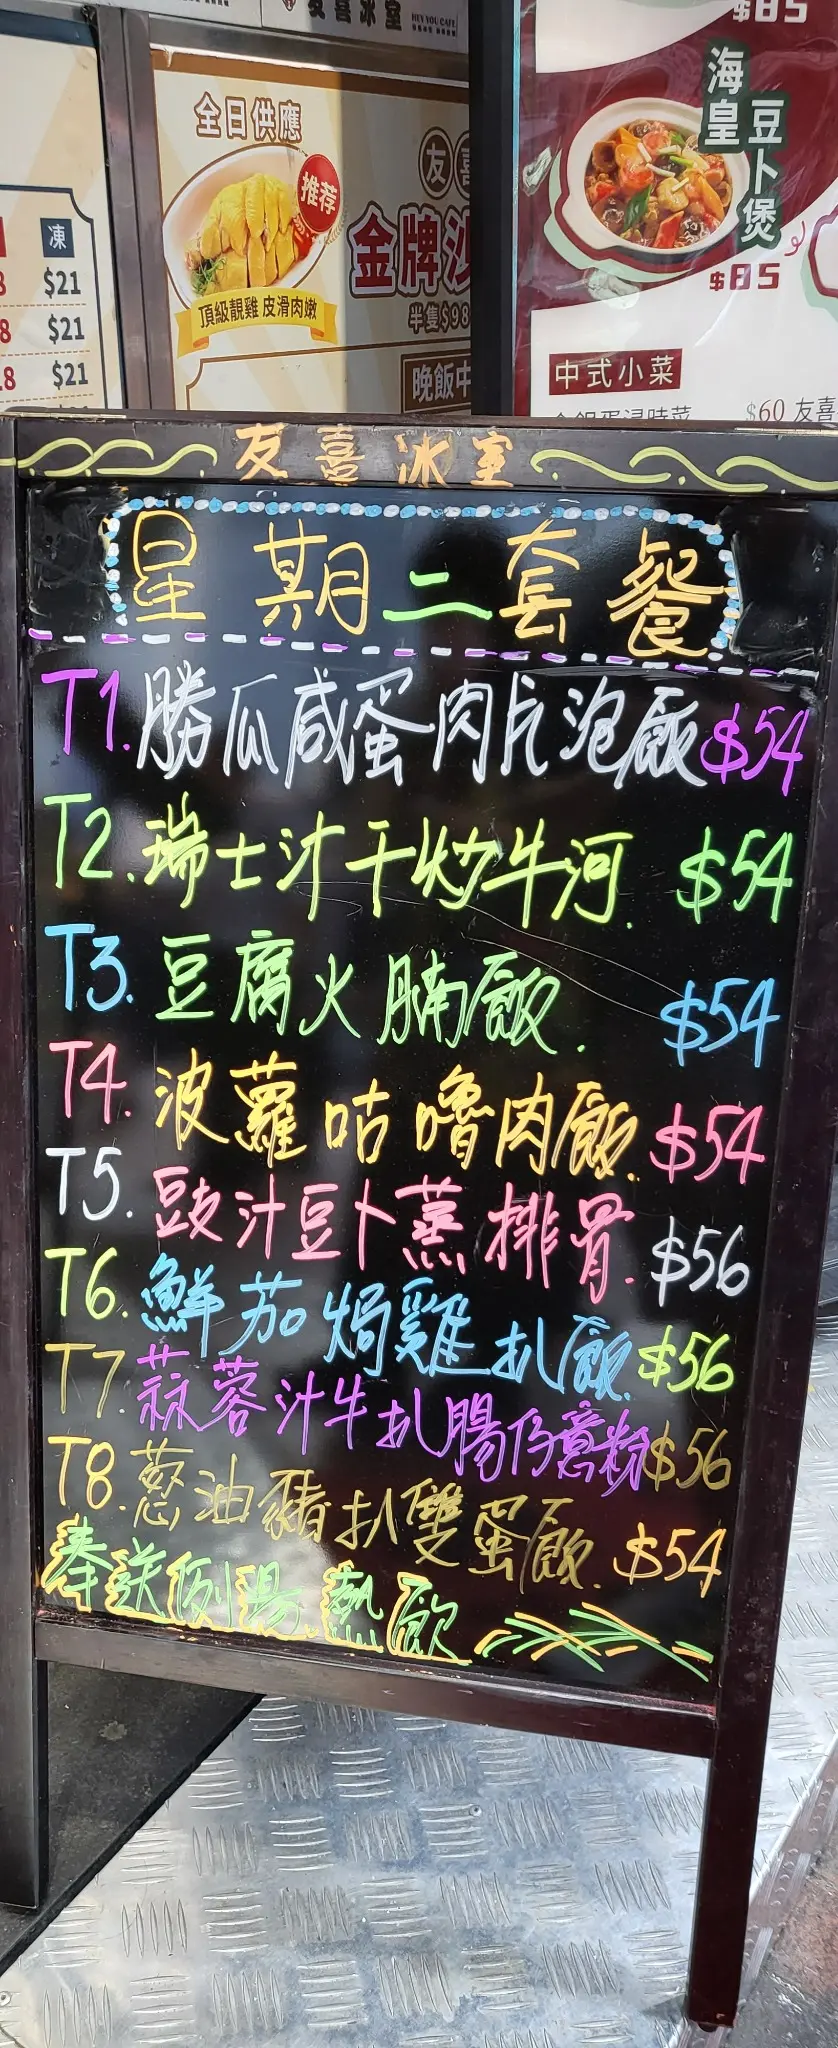 友喜冰室
HEY YOU CAFE
全日供應
推荐
頂級靚雞 皮滑肉嫩
友喜
金牌沙
半隻$98
晚飯中
凍
$21
$21
$21
$85
海皇
豆卜煲
$85
中式小菜
$60 友喜
友喜冰室
星期二套餐
T1.勝瓜咸蛋肉片泡飯$54
T2.瑞士汁干炒牛河.$54
T3.豆腐火腩飯.$54
T4.波蘿咕嚕肉飯.$54
T5.豉汁豆卜蒸排骨.$56
T6.鮮茄焗雞扒飯.$56
T7.蒜蓉汁牛扒腸仔意粉$56
T8.葱油豬扒雙蛋飯.$54
奉送例湯.熱飲